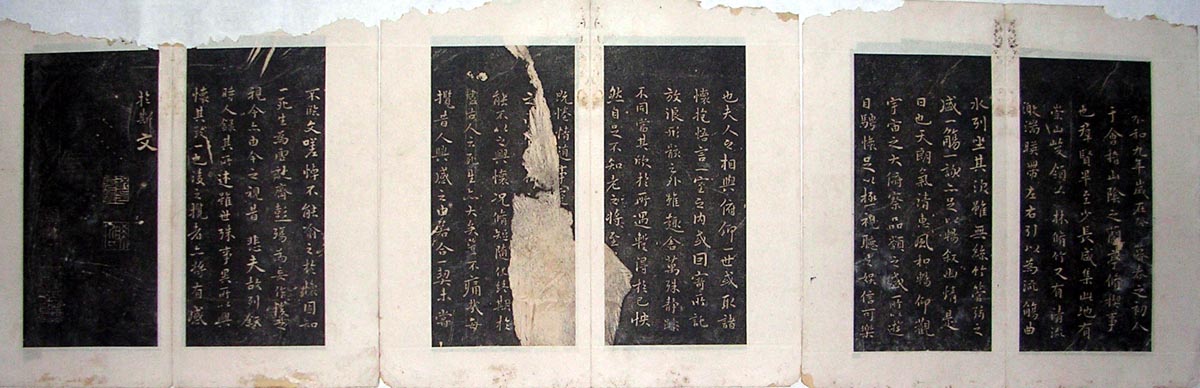 永和九年歲在癸丑暮春之初
于會稽山陰之蘭亭脩禊事
也群賢畢至少長咸集此地有
崇山峻領茂林脩竹又有清流
激湍暎帶左右引以為流觴曲
水列坐其次雖無絲竹管弦之
盛一觴一詠亦足以暢叙幽情是
日也天朗氣清惠風和暢仰觀
宇宙之大俯察品類之盛所以遊
目騁懷足以極視聽之娛信可樂
也夫人之相與俯仰一世或取諸
懷抱悟言一室之內或因寄所託
放浪形骸之外雖趣舍萬殊靜躁
不同當其欣於所遇暫得於己怏
然自足不知老之將至
既惓情隨事
之
能不以之興懷況脩短隨化終期於
盡古人云死生亦大矣豈不痛哉每
攬昔人興感之由若合一契未嘗
不臨文嗟悼不能喻之於懷固知
一死生為虛誕齊彭殤為妄作後之
視今亦由今之視昔悲夫故列叙
時人錄其所述雖世殊事異所以興
懷其致一也後之攬者亦將有感
於斯文